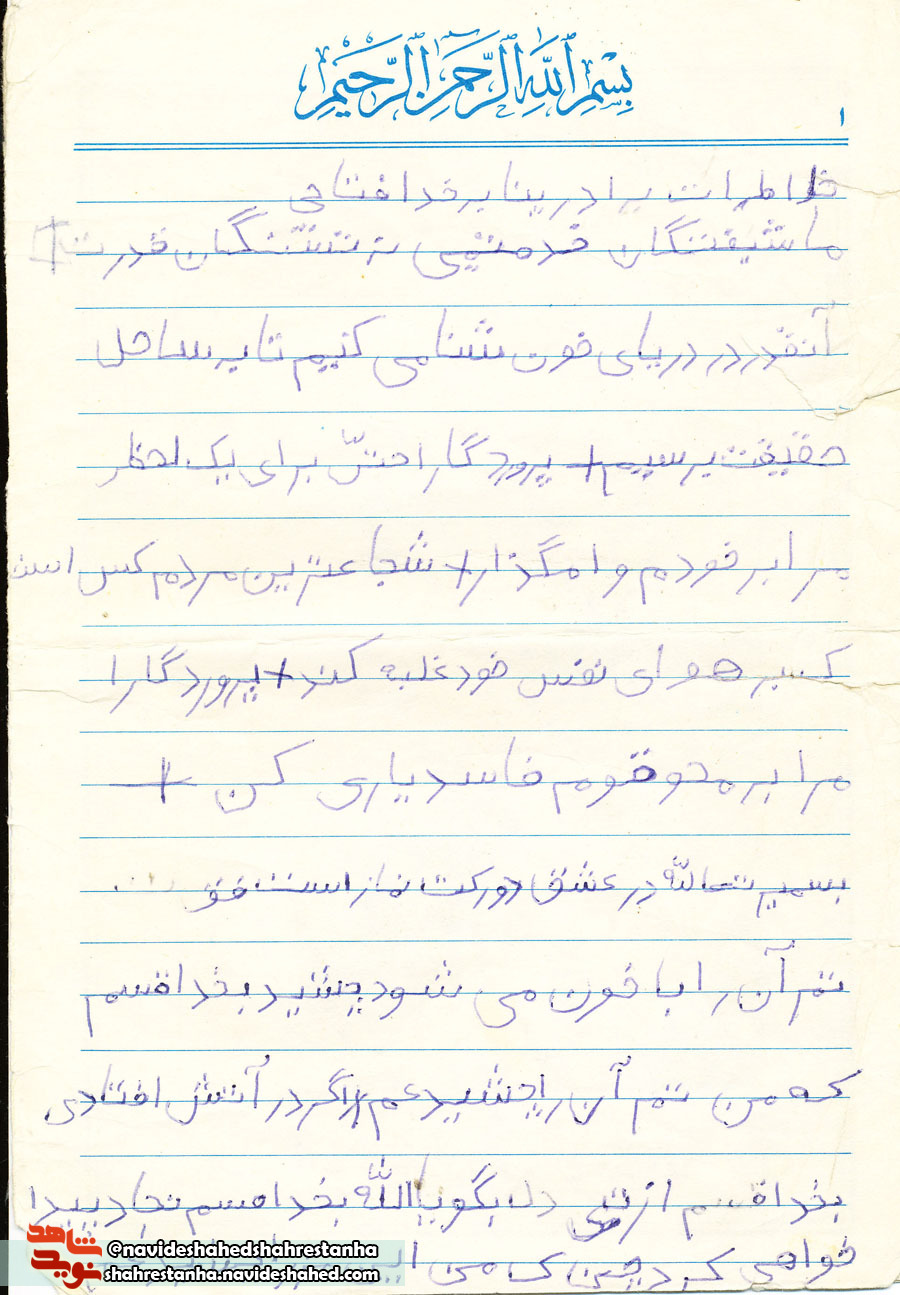 بسم الله الرحمن الرحیم
۱
خاطرات برادر بنابر خدا فتاحی
ما شیفتگان خدمتیمی نه تشنگان قدرت
آنقدر در دریای خون شنامی کنیم تا به ساحل
حقیقت برسیم + پروردگارا حتّ برای یک لحظر
مرا بر خودم وامگذار + شجاعترین مردم کس است
کسبر هوای نفس خود غلبه کند + پروردگارا
مرا بر محو قوم فاسد یاری کن +
در عشق دو رکت نماز است فقو
تم آن را با خون می شود چشید بخدا قسم
که من تم آن را چشید عم اگر در آتش افتادی
بخدا قسم از تهی دل بگو یا الله بخدا قسم نجاد پیدا
خواهی کرد چن ک می
شاهد
نوید
@navideshahedshahrestanha
shahrestanha.navideshahed.com